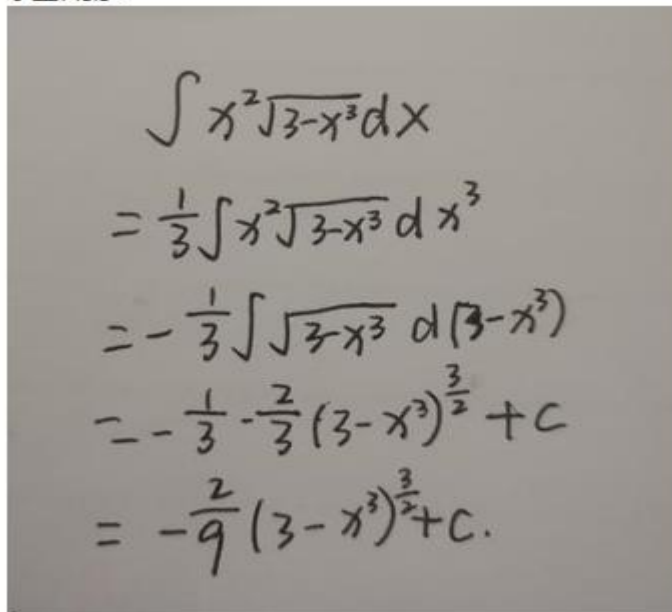 ∫ x²√(3-x³) dx
= 1/3 ∫ x²√(3-x³) d x³
= - 1/3 ∫ √(3-x³) d(3-x³)
= - 1/3 · 2/3 (3-x³)^(3/2) + C
= - 2/9 (3-x³)^(3/2) + C.